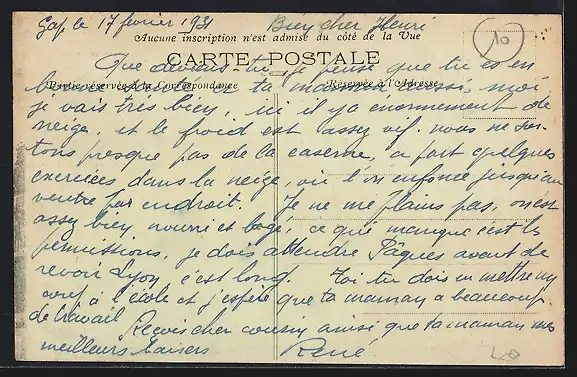 Gap, le 17 février 1931 Bien cher Henri
Aucune inscription n'est admise du côté de la Vue
CARTE POSTALE
10
Que deviens-tu, je pense que tu es en
Partie réservée à la Correspondance Réservée à l'Adresse
ta maman aussi, moi
je vais très bien, ici il y a enormement de
neige, et le froid est assez vif. nous ne sor-
tons presque pas de la caserne, a part quelques
exercices dans la neige, où l'on enfonce jusqu'au
ventre par endroit. Je ne me plains pas, on est
assez bien nourri et logé, ce qui manque c'est les
permissions, je dois attendre Pâques avant de
revoir Lyon c'est long. Toi tu dois en mettre un
coup à l'école et j'espère que ta maman a beaucoup
de travail Reçois cher cousin ainsi que ta maman mes
meilleurs baisers René